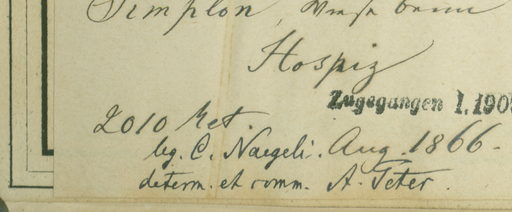 Simplon, Wiese beim
Hospiz
Zugegangen 1.190
2010 Met.
leg. C. Naegeli. Aug. 1866.
determ. et comm. A. Peter.